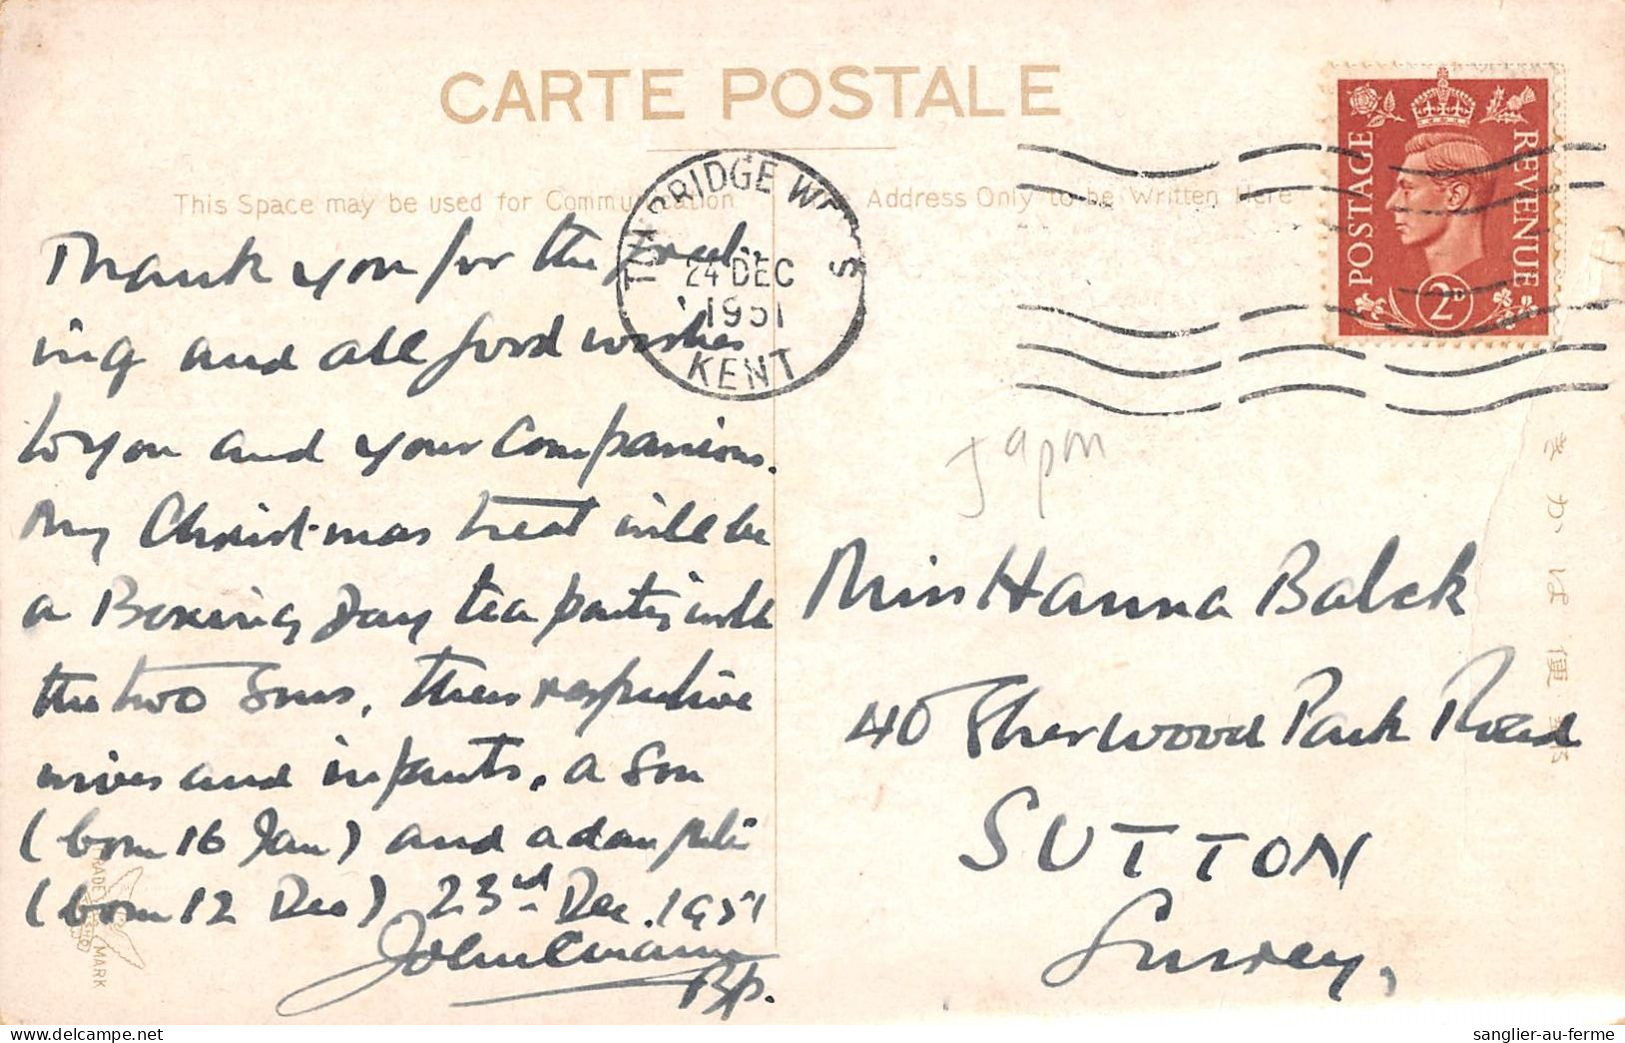 CARTE POSTALE
This Space may be used for Communication
Address Only to be Written Here
TUNBRIDGE WELLS
24 DEC
1951
KENT
POSTAGE
REVENUE
2D
Thank you for the greet-
ing and all good wishes
to you and your companions.
My Christ-mas treat will be
a Boxing Day tea party with
the two sons, their respective
wives and infants, a son
(born 16 Jan) and a daughter
(born 12 Dec) 23rd Dec. 1951
John C Mann
Bp.
Japon
Miss Hanna Balck
40 Sherwood Park Road
SUTTON
Surrey,
きかは便
TRADE MARK
delcampe.net
sanglier-au-ferme